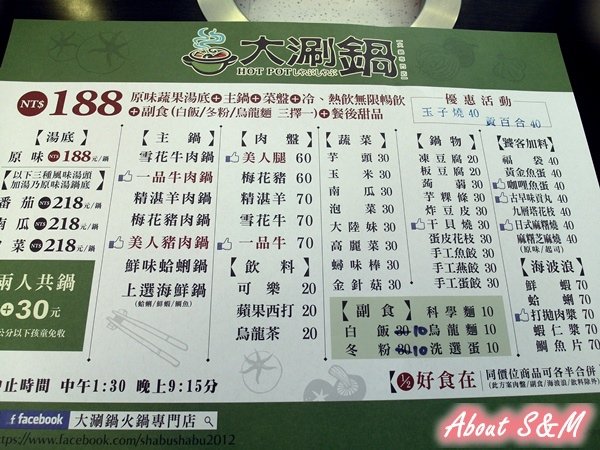 大涮鍋
HOT POT しゃぶしゃぶ
NT$ 188 原味蔬果湯底+主鍋+菜盤+冷、熱飲無限暢飲
+副食(白飯/冬粉/烏龍麵 三擇一)+餐後甜品
優惠活動
玉子燒 40
黃百合 40
【湯底】
原味 NT$ 188元/鍋
以下三種風味湯頭
加湯乃原味湯鍋底
番茄 NT$ 218元/鍋
南瓜 NT$ 218元/鍋
菜 NT$ 218元/鍋
兩人共鍋
+30元
公分以下孩童免收
【主鍋】
雪花牛肉鍋
一品牛肉鍋
精湛羊肉鍋
梅花豬肉鍋
美人豬肉鍋
鮮味蛤蜊鍋
上選海鮮鍋
(蛤蜊/鮮蝦/鯛魚)
【肉盤】
美人腿 60
梅花豬 60
精湛羊 70
雪花牛 70
一品牛 70
【飲料】
可樂 20
蘋果西打 20
烏龍茶 20
【蔬菜】
芋頭 30
玉米 30
南瓜 30
泡菜 30
大陸妹 30
高麗菜 30
蟳味棒 30
金針菇 30
【鍋物】
凍豆腐 20
板豆腐 20
蒟蒻 30
芋粿條 30
炸豆皮 30
干貝燒 30
蛋皮花枝 30
手工魚餃 30
手工燕餃 30
手工蛋餃 30
【饕客加料】
福袋 40
黃金魚蛋 40
咖哩魚蛋 40
古早味貢丸 40
九層塔花枝 40
日式麻糬燒 40
麻糬芝麻燒 40
(原味/起司)
【海波浪】
鮮蝦 70
蛤蜊 70
打拋肉漿 70
蝦仁漿 70
鯛魚片 70
【副食】
白飯 30 10
冬粉 30 10
科學麵 10
烏龍麵 10
洗選蛋 10
½ 好食在
同價位商品可各半合併
(此方案肉盤/副食/海波浪/飲料除外)
止時間 中午1:30 晚上9:15分
facebook 大涮鍋火鍋專門店
https://www.facebook.com/shabushabu2012
About S&M